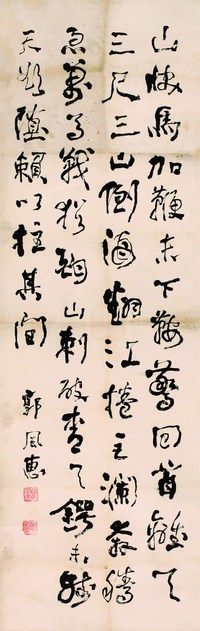 山快馬加鞭未下鞍驚回首離天
三尺三山倒海翻江捲巨瀾奔騰
急萬馬戰猶酣山刺破青天鍔未殘
天欲墮賴以拄其間
郭風惠